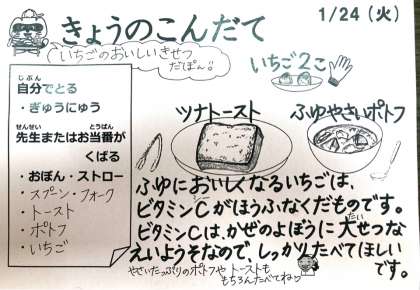 きょうのこんだて
1/24(火)
いちごのおいしいきせつ
だぽん!!
いちご2こ
自分でとる
じぶん
・ぎゅうにゅう
せんせい とうばん
先生またはお当番が
くばる
・おぼん・ストロー
・スプーン・フォーク
・トースト
・ポトフ
・いちご
ツナトースト
ふゆやさいポトフ
ふゆにおいしくなるいちごは、
ビタミンCがほうふなくだものです。
ビタミンCは、かぜのよぼうに大せつな
えいようそなので、しっかりたべてほしい
です。
やさいたっぷりのポトフや トーストも
もちろんたべてね